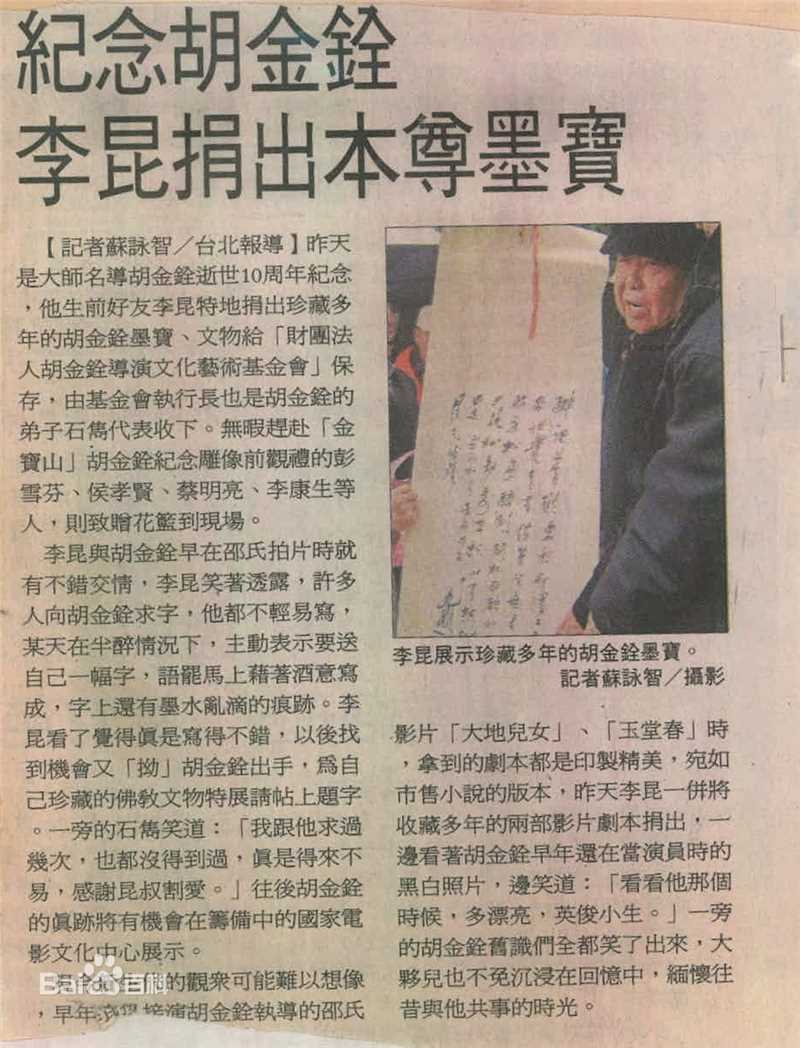 紀念胡金銓
李昆捐出本尊墨寶
【記者蘇詠智／台北報導】昨天
是大師名導胡金銓逝世10周年紀念
，他生前好友李昆特地捐出珍藏多
年的胡金銓墨寶、文物給「財團法
人胡金銓導演文化藝術基金會」保
存，由基金會執行長也是胡金銓的
弟子石雋代表收下。無暇趕赴「金
寶山」胡金銓紀念雕像前觀禮的彭
雪芬、侯孝賢、蔡明亮、李康生等
人，則致贈花籃到現場。
李昆與胡金銓早在邵氏拍片時就
有不錯交情，李昆笑著透露，許多
人向胡金銓求字，他都不輕易寫，
某天在半醉情況下，主動表示要送
自己一幅字，語罷馬上藉著酒意寫
成，字上還有墨水亂滴的痕跡。李
昆看了覺得眞是寫得不錯，以後找
到機會又「拗」胡金銓出手，爲自
己珍藏的佛教文物特展請帖上題字
。一旁的石雋笑道：「我跟他求過
幾次，也都沒得到過，眞是得來不
易，感謝昆叔割愛。」往後胡金銓
的眞跡將有機會在籌備中的國家電
影文化中心展示。
的觀衆可能難以想像
，早年演胡金銓執導的邵氏
Baidu百科
李昆展示珍藏多年的胡金銓墨寶。
記者蘇詠智／攝影
影片「大地兒女」、「玉堂春」時
，拿到的劇本都是印製精美，宛如
市售小說的版本，昨天李昆一併將
收藏多年的兩部影片劇本捐出，一
邊看著胡金銓早年還在當演員時的
黑白照片，邊笑道：「看看他那個
時候，多漂亮，英俊小生。」一旁
的胡金銓舊識們全都笑了出來，大
夥兒也不免沉浸在回憶中，緬懷往
昔與他共事的時光。